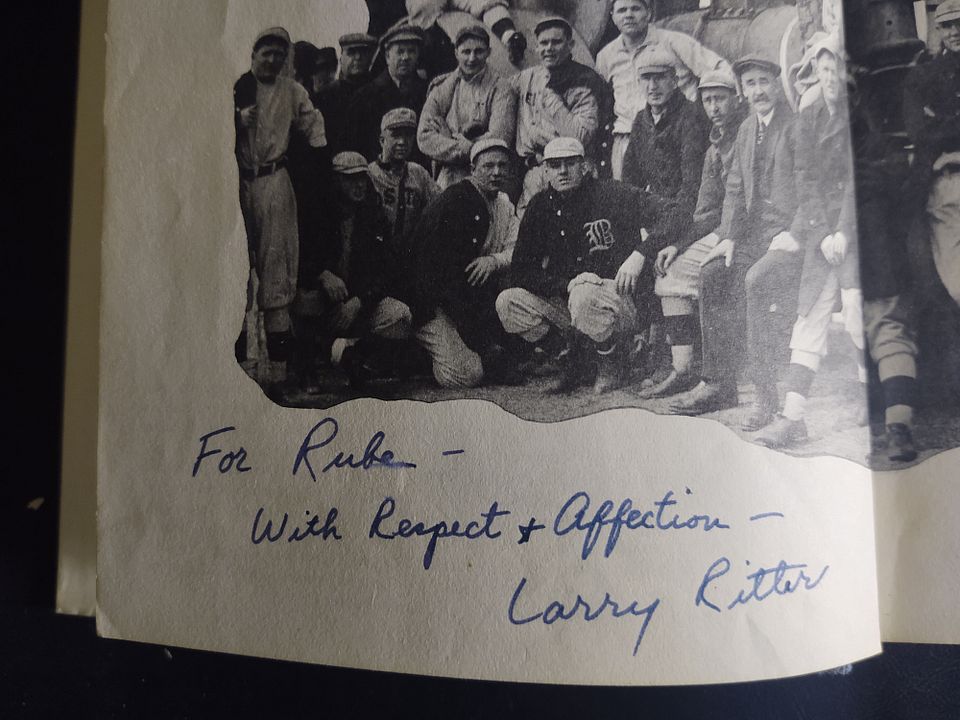 B
For Rube -
With Respect + Affection -
Larry Ritter